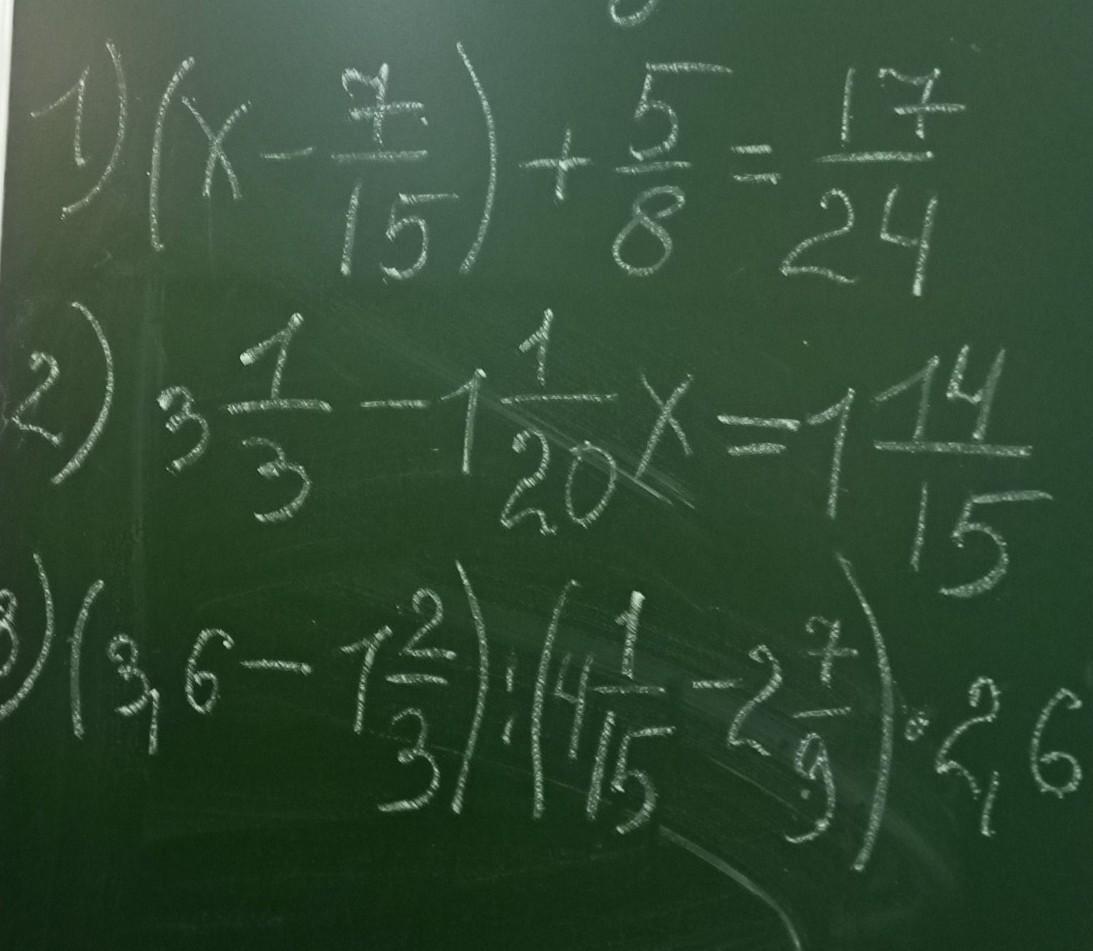 1) (x - 7/15) + 5/8 = 17/24
2) 3 1/3 - 1 1/20 x = 1 14/15
3) (3,6 - 1 2/3) : (4 1/15 - 2 7/9) · 2,6